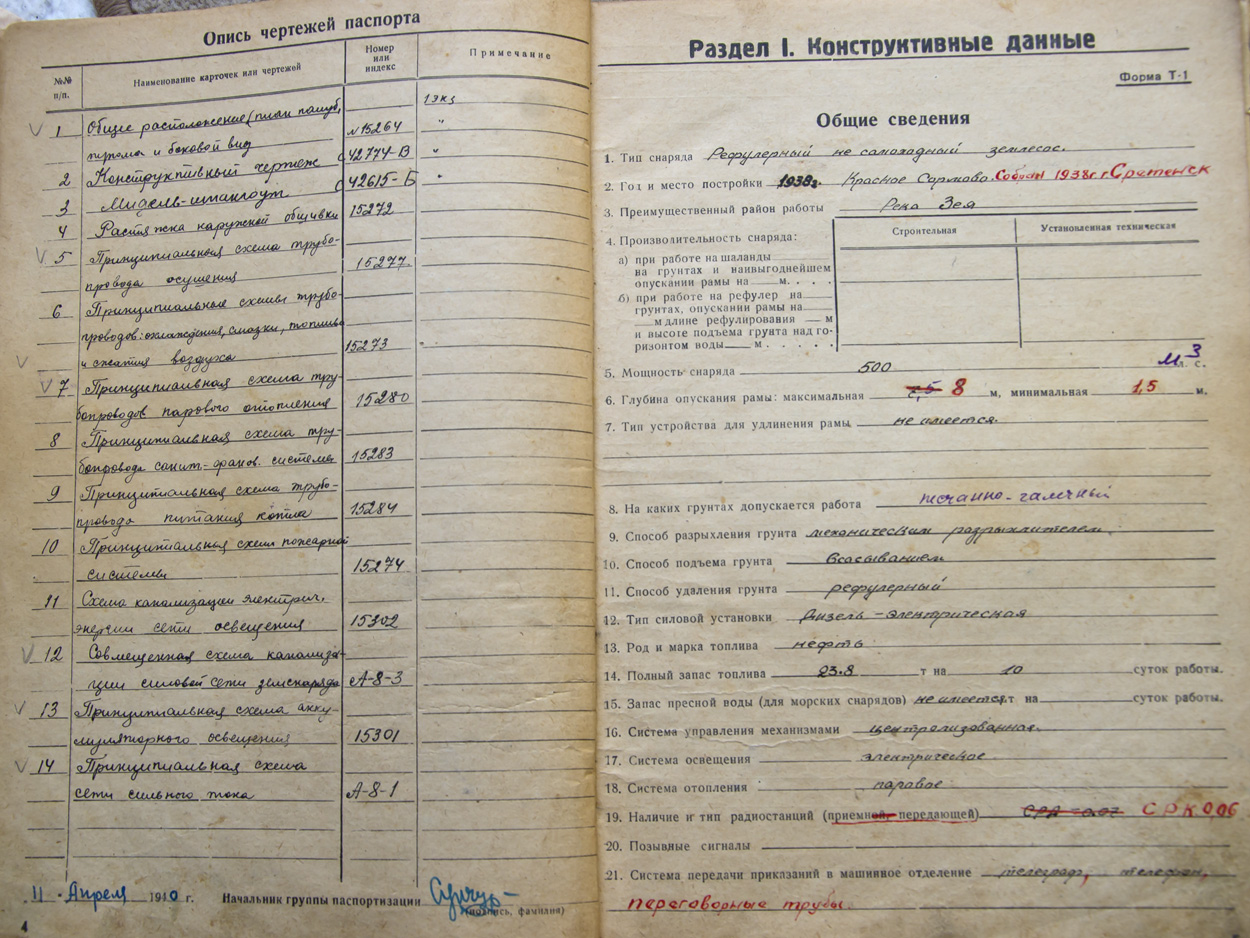 Опись чертежей паспорта
№№ п/п.
Наименование карточек или чертежей
Номер или индекс
Примечание
1 Общие расположение (план палуб, 1 экз
трюма и боковой вид №15264 "
2 Конструктивный чертеж 42774-В "
3 Мидель-шпангоут 42615-Б "
4 Растяжка наружной обшивки 15272
5 Принципиальная схема трубо-
провода осушения 15277.
6 Принципиальные схемы трубо-
проводов: охлаждения, смазки, топлива
и сжатия воздуха 15273 "
7 Принципиальная схема тру-
бопроводов парового отопления 15280
8 Принципиальная схема тру-
бопровода санит.-фанов. системы 15283
9 Принципиальная схема трубо-
провода питания котла 15284
10 Принципиальная схема пожарной
системы 15274
11 Схема канализации электрич.
энергии сети освещения 15302
12 Совмещенная схема канализа-
ции силовой сети земснаряда А-8-3
13 Принципиальная схема акку-
муляторного освещения 15301
14 Принципиальная схема
сети сильного тока А-8-1
11 Апреля 1940 г. Начальник группы паспортизации
(подпись, фамилия)
4
Раздел I. Конструктивные данные
Форма Т-1
Общие сведения
1. Тип снаряда Рефулерный не самоходный землесос.
2. Год и место постройки 1938г. Красное Сормово. Собран 1938г г. Сретенск
3. Преимущественный район работы Река Зея
4. Производительность снаряда: Строительная Установленная техническая
а) при работе на шаланды
на грунтах и наивыгоднейшем
опускании рамы на м. . . .
б) при работе на рефулер на
грунтах, опускании рамы на
м длине рефулирования м
и высоте подъема грунта над го-
ризонтом воды м . . . . .
5. Мощность снаряда 500 м3 л. с.
6. Глубина опускания рамы: максимальная 8 м, минимальная 1,5 м.
7. Тип устройства для удлинения рамы не имеется.
8. На каких грунтах допускается работа песчанно-галечный
9. Способ разрыхления грунта механическим разрыхлителем
10. Способ подъема грунта всасыванием
11. Способ удаления грунта рефулерный
12. Тип силовой установки Дизель-электрическая
13. Род и марка топлива нефть
14. Полный запас топлива 23.8 т на 10 суток работы.
15. Запас пресной воды (для морских снарядов) не имеется т на суток работы.
16. Система управления механизмами централизованная.
17. Система освещения электрическое
18. Система отопления паровое
19. Наличие и тип радиостанций (приемной-передающей) СРД-0.07 СРК 0,06
20. Позывные сигналы
21. Система передачи приказаний в машинное отделение телеграф, телефон,
переговорные трубы.